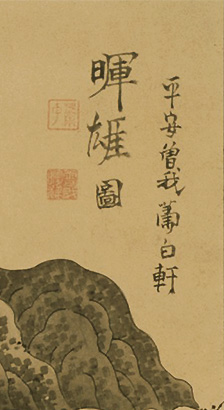 平安曽我蕭白軒
暉雄圖